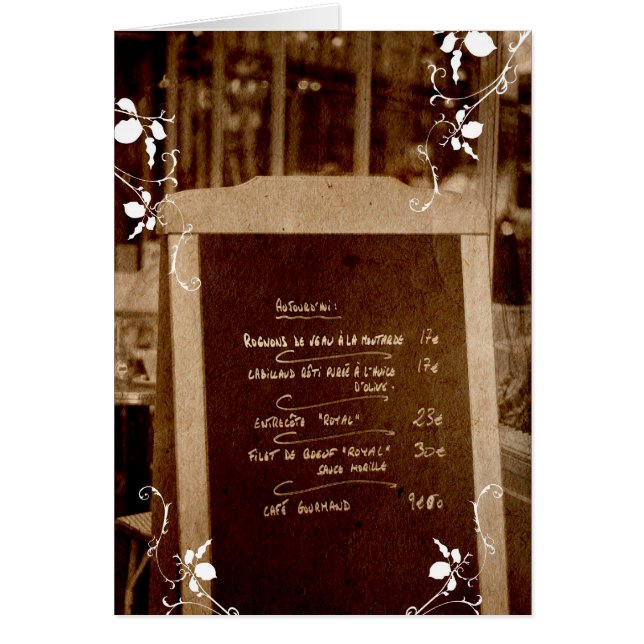 AUJOURD'HUI :
ROGNONS DE VEAU À LA MOUTARDE 17€
CABILLAUD RÔTI PURÉE À L'HUILE 17€
D'OLIVE.
ENTRECÔTE "ROYAL" 23€
FILET DE BOEUF "ROYAL" 30€
SAUCE MORILLE
CAFÉ GOURMAND 9€00